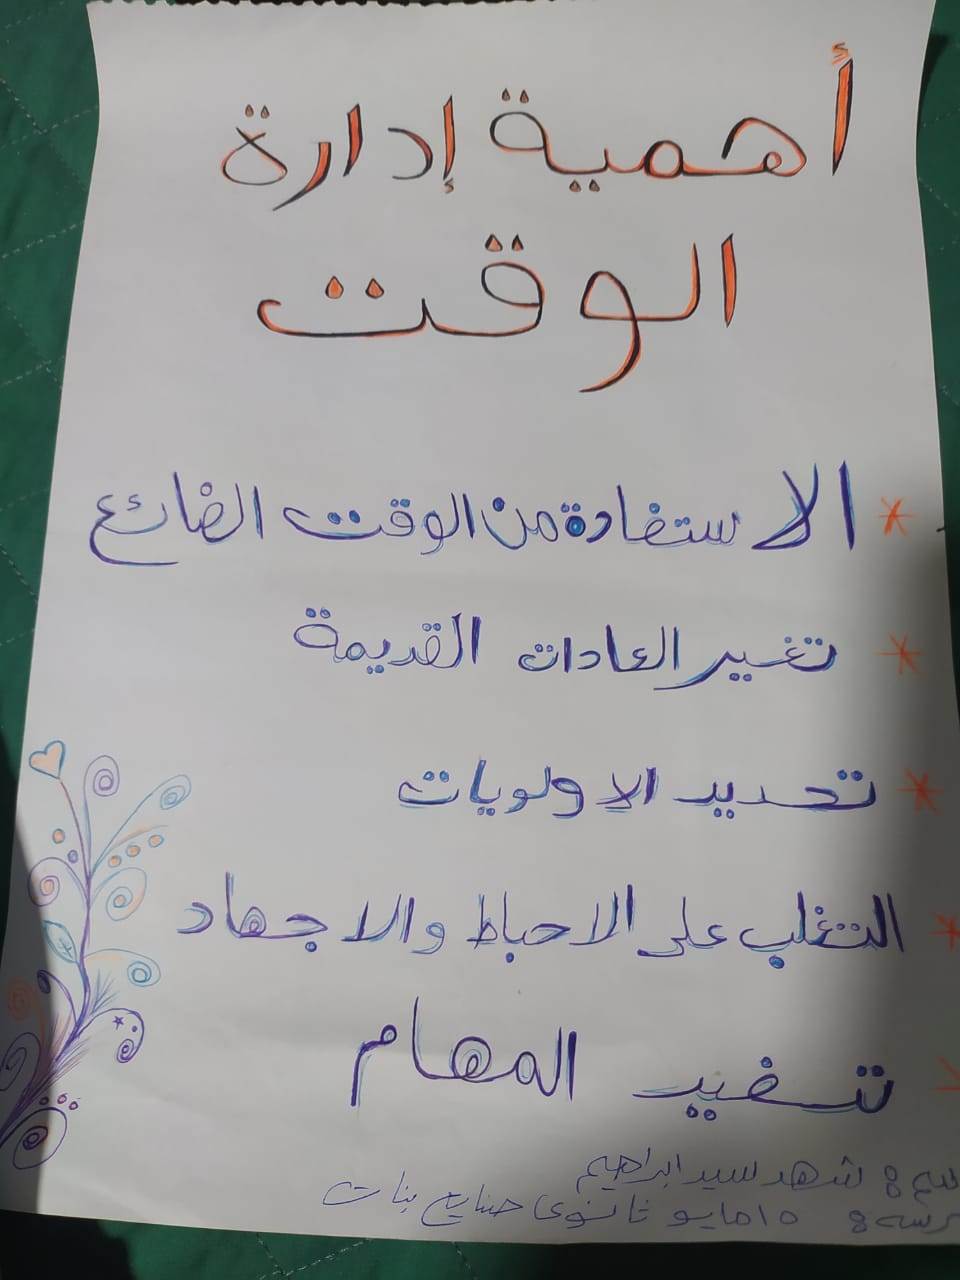 أهمية إدارة
الوقت
* الاستفادة من الوقت الضائع
* تغير العادات القديمة
* تحديد الاولويات
* التغلب على الاحباط والاجهاد
* تنفيد المهام
سم: شهد سيد ابراهيم
رسه: ١٥ مايو ثانوى صنايع بنات